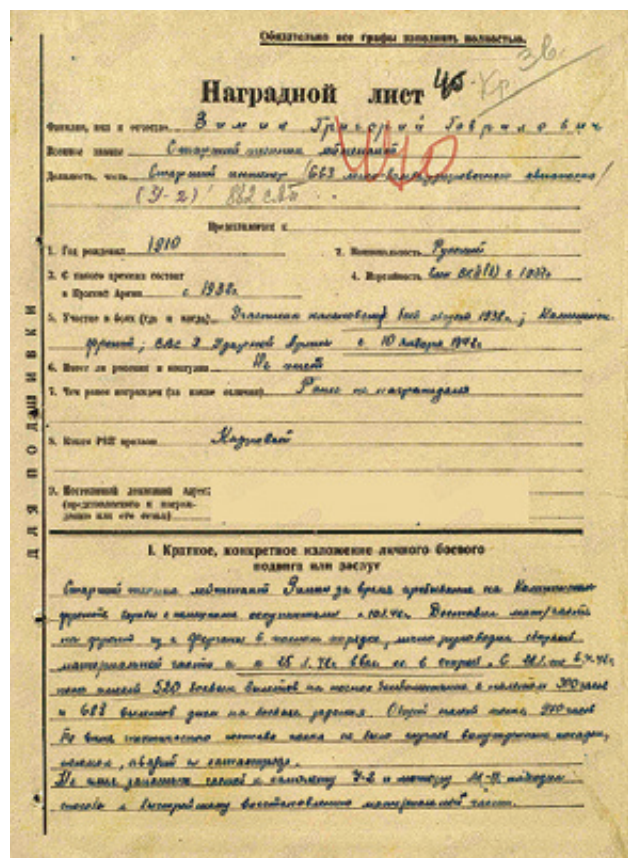 Обязательно все графы заполнить полностью.
Зв.
Наградной лист
Фамилия, имя и отчество Зимин Григорий Гаврилович
440
Военное звание Старший техник лейтенант
Должность, часть Старший инженер /663 легко-бомбардировочного авиаполка/
(У-2) 882 САП
Представляется к
1. Год рождения 1910
2. Национальность Русский
3. С какого времени состоит
в Красной Армии с 1932г.
4. Партийность член ВКП(б) с
5. Участие в боях (где и когда) Участник 1938г.; Калининск.
фронт; ВВС 3 Ударной Армии с 10 января 1942г.
6. Имеет ли ранения и контузии Не имеет
7. Чем ранее награжден (за какие отличия) Ранее не награждался
8. Каким РВК призван Кадровый
9. Постоянный домашний адрес:
(представляемого к награж-
дению или его семьи)
ДЛЯ ПОДШИВКИ
I. Краткое, конкретное изложение личного боевого
подвига или заслуг
Старший техник лейтенант Зимин за время пребывания на Калининском
фронте борьбы с немецкими оккупантами с 10.1.42г. Доставил мат/часть
на фронт из г. Фергана в полном порядке, лично руководил сборкой
материальной части и к 25.1.42г. ввел ее в строй. С
полк имеет 520 боевых вылетов на ночное бомбометание с налетом 300 часов
и 688 вылетов днем на боевые задания. Общий налет полка 970 часов
По вине технического состава полка не было случаев вынужденных посадок,
поломок, аварий и катастроф.
Не имея запасных частей к самолету У-2 и мотору М-11 находил
способы к быстрейшему восстановлению материальной части.